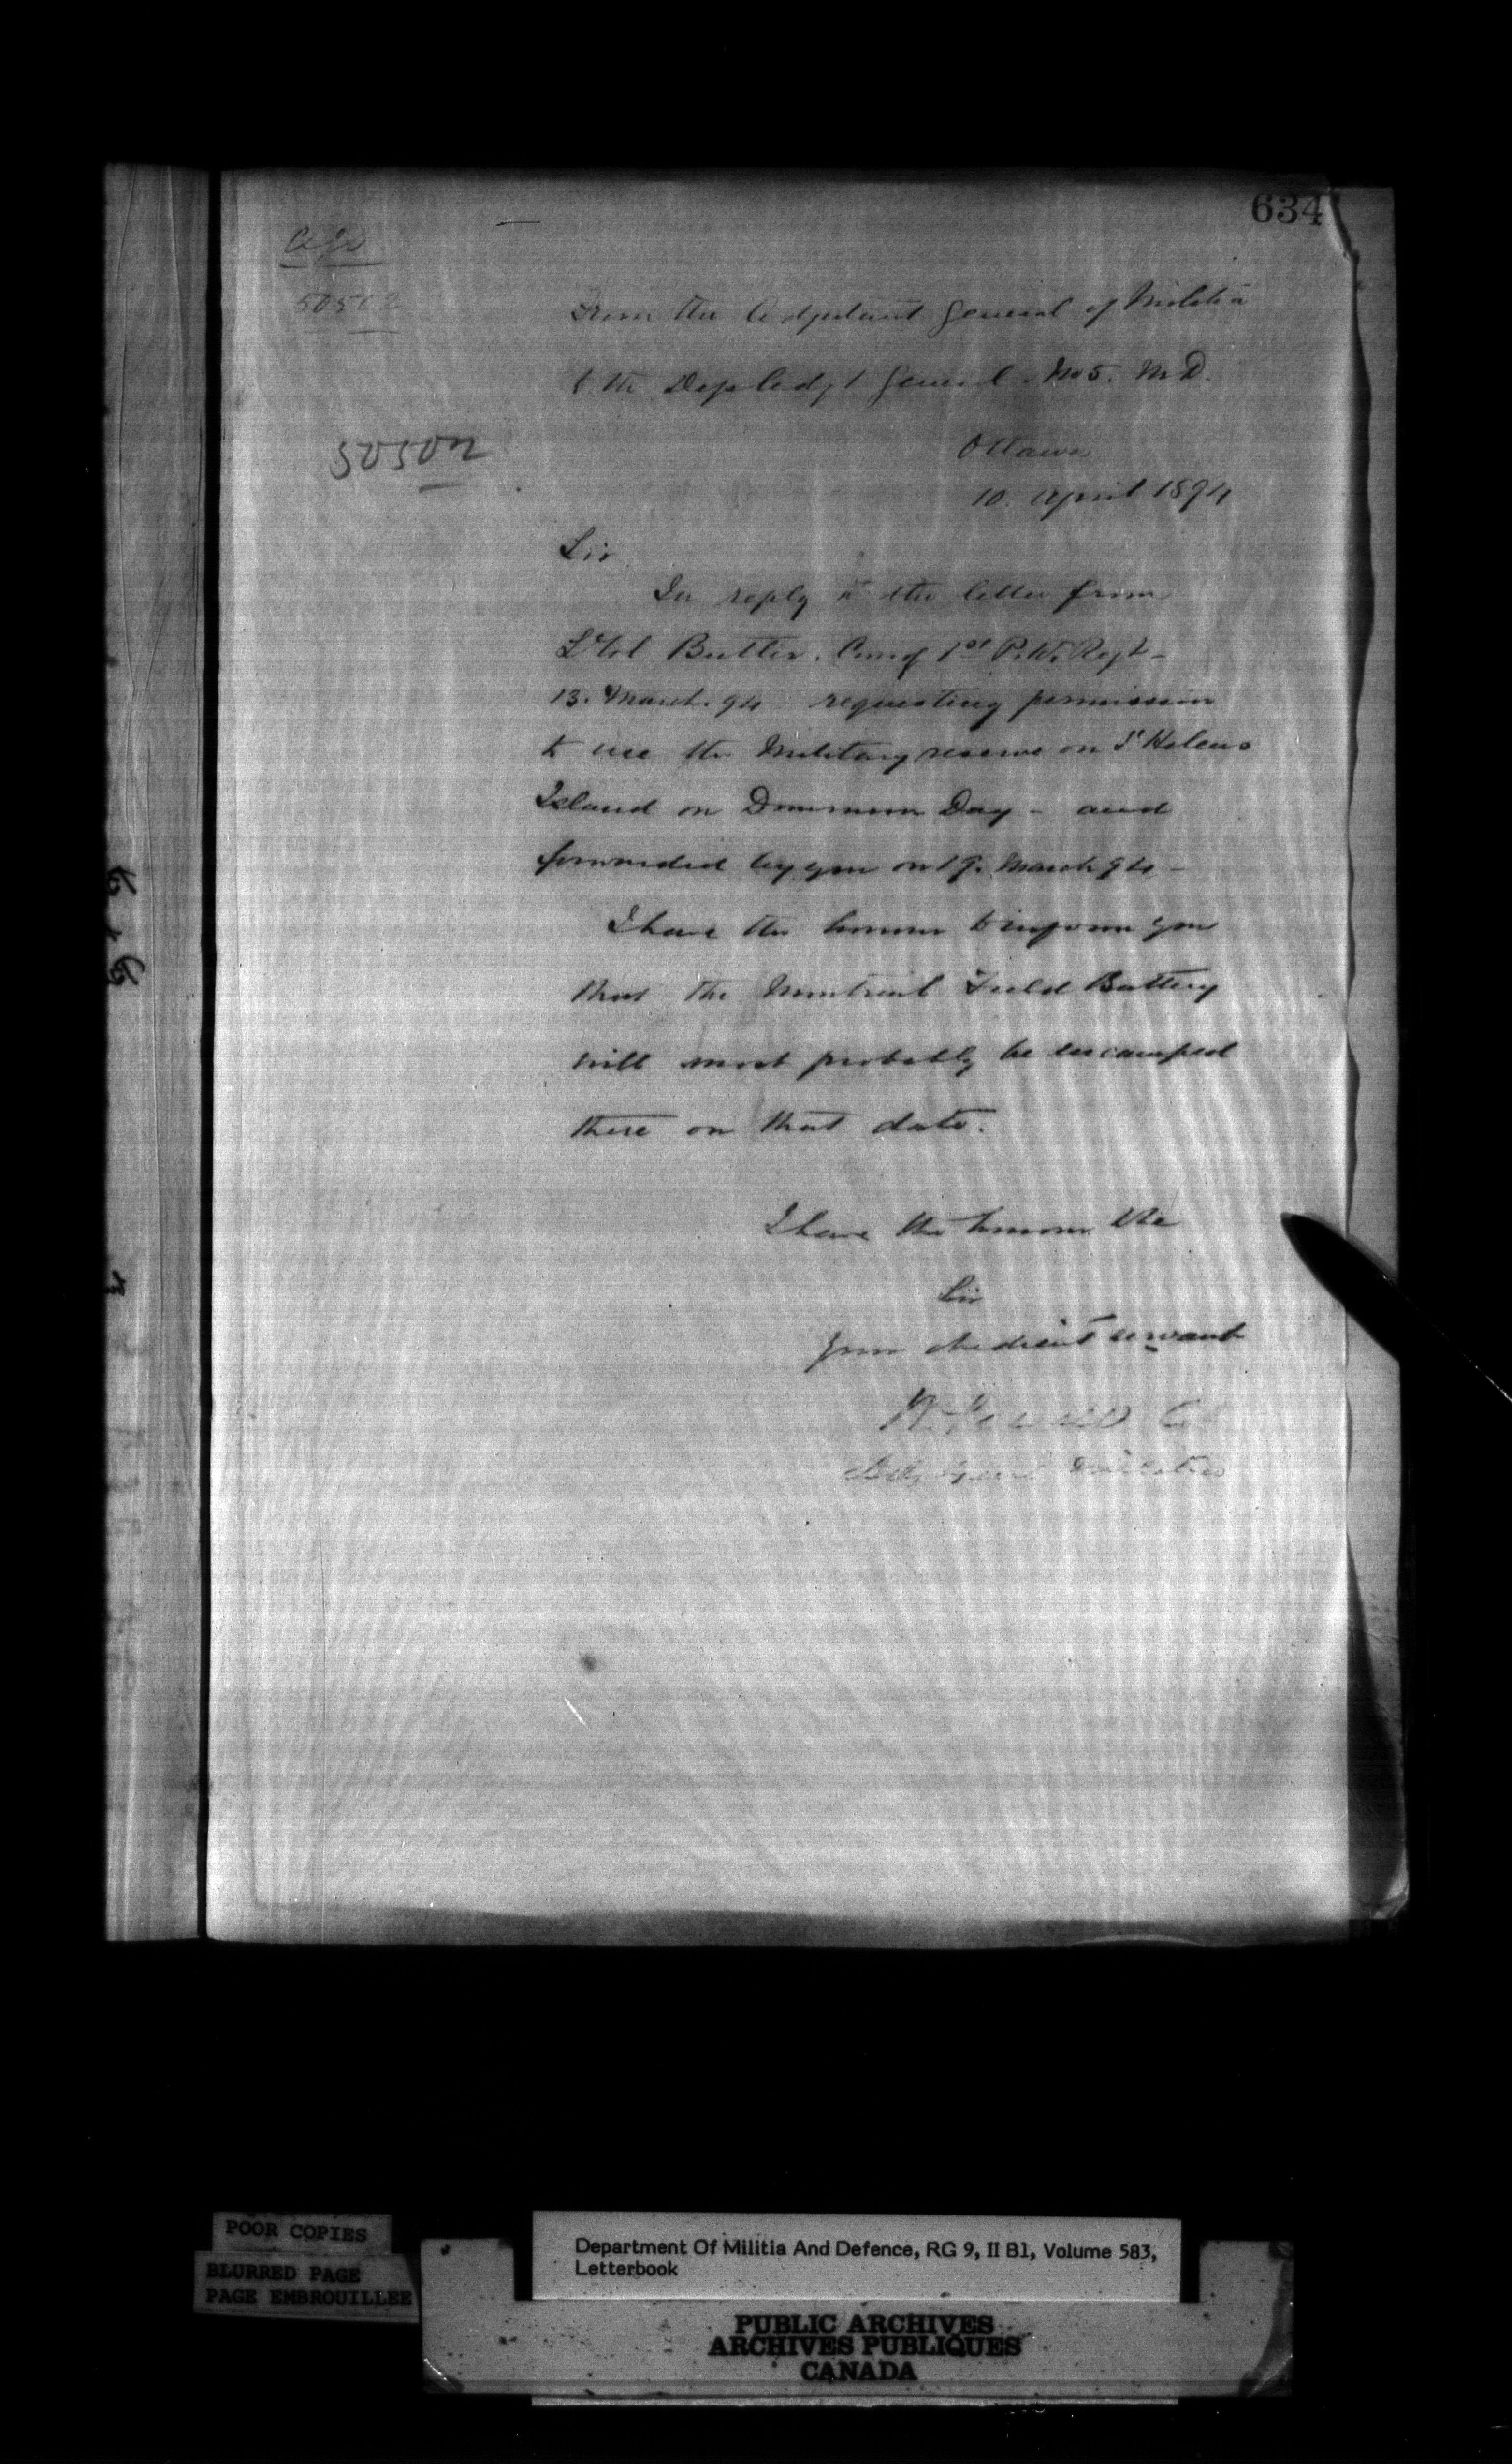 634
AGO
50502
From the Adjutant General of Militia
to the Dep Adjt General - No 5. M D.
50502
Ottawa
10. April 1894
Sir.
In reply to the letter from
Lt Col Butler. Comg 1st P. W. Regt -
13. March. 94 requesting permission
to use the Military reserve on St Helens
Island on Dominion Day - and
forwarded by you on 19. March 94 -
I have the honour to inform you
that the Montreal Field Battery
will most probably be encamped
there on that date.
I have the honour to be
Sir
Your obedient servant
Powell Col
Adjt Genl Militia
POOR COPIES
BLURRED PAGE
PAGE EMBROUILLEE
Department Of Militia And Defence, RG 9, II B1, Volume 583,
Letterbook
PUBLIC ARCHIVES
ARCHIVES PUBLIQUES
CANADA